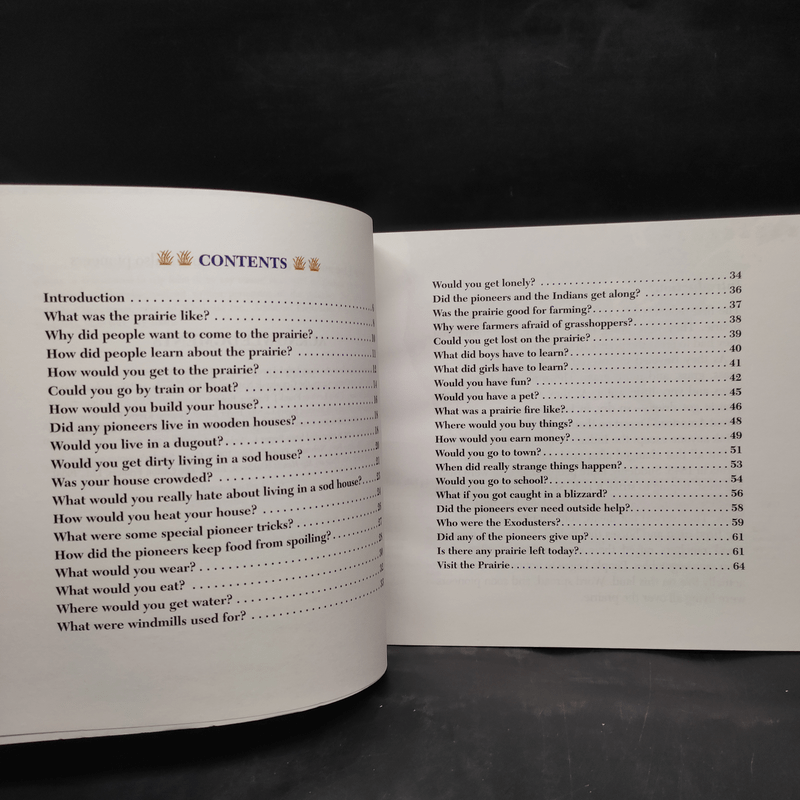 CONTENTS
Introduction . . . . . . . . . . . . . . . . . . . . . . . . . . . . . . . . .
What was the prairie like? . . . . . . . . . . . . . . . . . . . . . .
Why did people want to come to the prairie? . . . . . . . . . 10
How did people learn about the prairie? . . . . . . . . . . . . 11
How would you get to the prairie? . . . . . . . . . . . . . . . . 12
Could you go by train or boat? . . . . . . . . . . . . . . . . . . . 14
How would you build your house? . . . . . . . . . . . . . . . . . 16
Did any pioneers live in wooden houses? . . . . . . . . . . . . 18
Would you live in a dugout? . . . . . . . . . . . . . . . . . . . . .
Would you get dirty living in a sod house? . . . . . . . . . . 20
Was your house crowded? . . . . . . . . . . . . . . . . . . . . . .
What would you really hate about living in a sod house? . . . . 23
How would you heat your house? . . . . . . . . . . . . . . . . . 24
What were some special pioneer tricks? . . . . . . . . . . . . 26
How did the pioneers keep food from spoiling? . . . . . . . 27
What would you wear? . . . . . . . . . . . . . . . . . . . . . . . .
What would you eat? . . . . . . . . . . . . . . . . . . . . . . . . . 30
Where would you get water? . . . . . . . . . . . . . . . . . . . . 32
What were windmills used for? . . . . . . . . . . . . . . . . . . 33
Would you get lonely? . . . . . . . . . . . . . . . . . . . . . . . . 34
Did the pioneers and the Indians get along? . . . . . . . . . 36
Was the prairie good for farming? . . . . . . . . . . . . . . . . 37
Why were farmers afraid of grasshoppers? . . . . . . . . . . 38
Could you get lost on the prairie? . . . . . . . . . . . . . . . . 39
What did boys have to learn? . . . . . . . . . . . . . . . . . . . 40
What did girls have to learn? . . . . . . . . . . . . . . . . . . . 41
Would you have fun? . . . . . . . . . . . . . . . . . . . . . . . . . 42
Would you have a pet? . . . . . . . . . . . . . . . . . . . . . . . . 45
What was a prairie fire like? . . . . . . . . . . . . . . . . . . . . 46
Where would you buy things? . . . . . . . . . . . . . . . . . . . 48
How would you earn money? . . . . . . . . . . . . . . . . . . . . 49
Would you go to town? . . . . . . . . . . . . . . . . . . . . . . . . 51
When did really strange things happen? . . . . . . . . . . . . 53
Would you go to school? . . . . . . . . . . . . . . . . . . . . . . . 54
What if you got caught in a blizzard? . . . . . . . . . . . . . . 56
Did the pioneers ever need outside help? . . . . . . . . . . . 58
Who were the Exodusters? . . . . . . . . . . . . . . . . . . . . . 59
Did any of the pioneers give up? . . . . . . . . . . . . . . . . . 61
Is there any prairie left today? . . . . . . . . . . . . . . . . . . 61
Visit the Prairie . . . . . . . . . . . . . . . . . . . . . . . . . . . . . 64